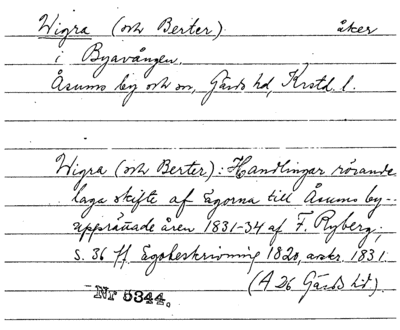 Wigra (och Berter). åker
i Byavången.
Åsums by och sn, Gärds hd, Krstd. l.
Wigra (och Berter): Handlingar rörande
laga skifte af Egorna till Åsums by--
upprättade åren 1831-34 af F. Ryberg;
s. 36 ff Egobeskrivning 1820, avskr. 1831.
(A 26 Gärds hd).
Nr 5344.